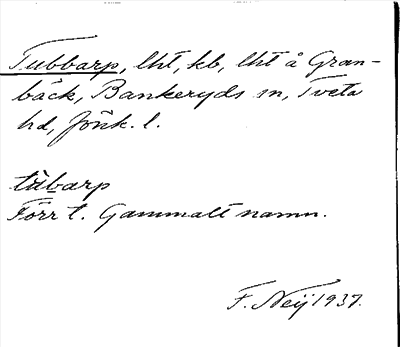 Tubbarp, lht, kb, lht å Gran-
bäck, Bankeryds sn, Tveta
hd, Jönk. l.
tùbarp
Förr t. Gammalt namn.
F. Neij 1937.